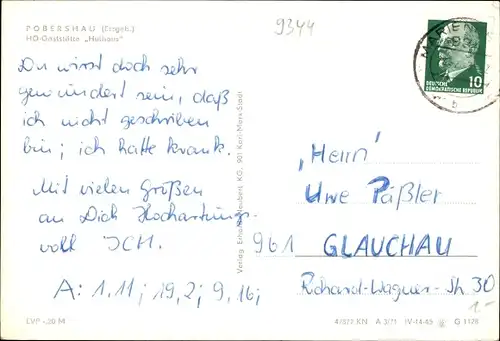 POBERSHAU (Erzgeb.)
HO-Gaststätte „Huthaus"
9344
MARIEN
DEUTSCHE
DEMOKRATISCHE REPUBLIK
10
b
Du wirst doch sehr
gewundert sein, daß
ich nicht geschrieben
bin; ich hatte krank.
Mit vielen Größen
an Dich Hochartungs-
voll ICH.
A: 1,11; 19,2; 9,16;
Verlag Erhard Neubert KG, 901 Karl-Marx-Stadt
„Herrn"
Uwe Päßler
961 GLAUCHAU
Richard-Wagner-Sh. 30
1.-
EVP -,20 M
A 3/71 IV-14-45 G 1128